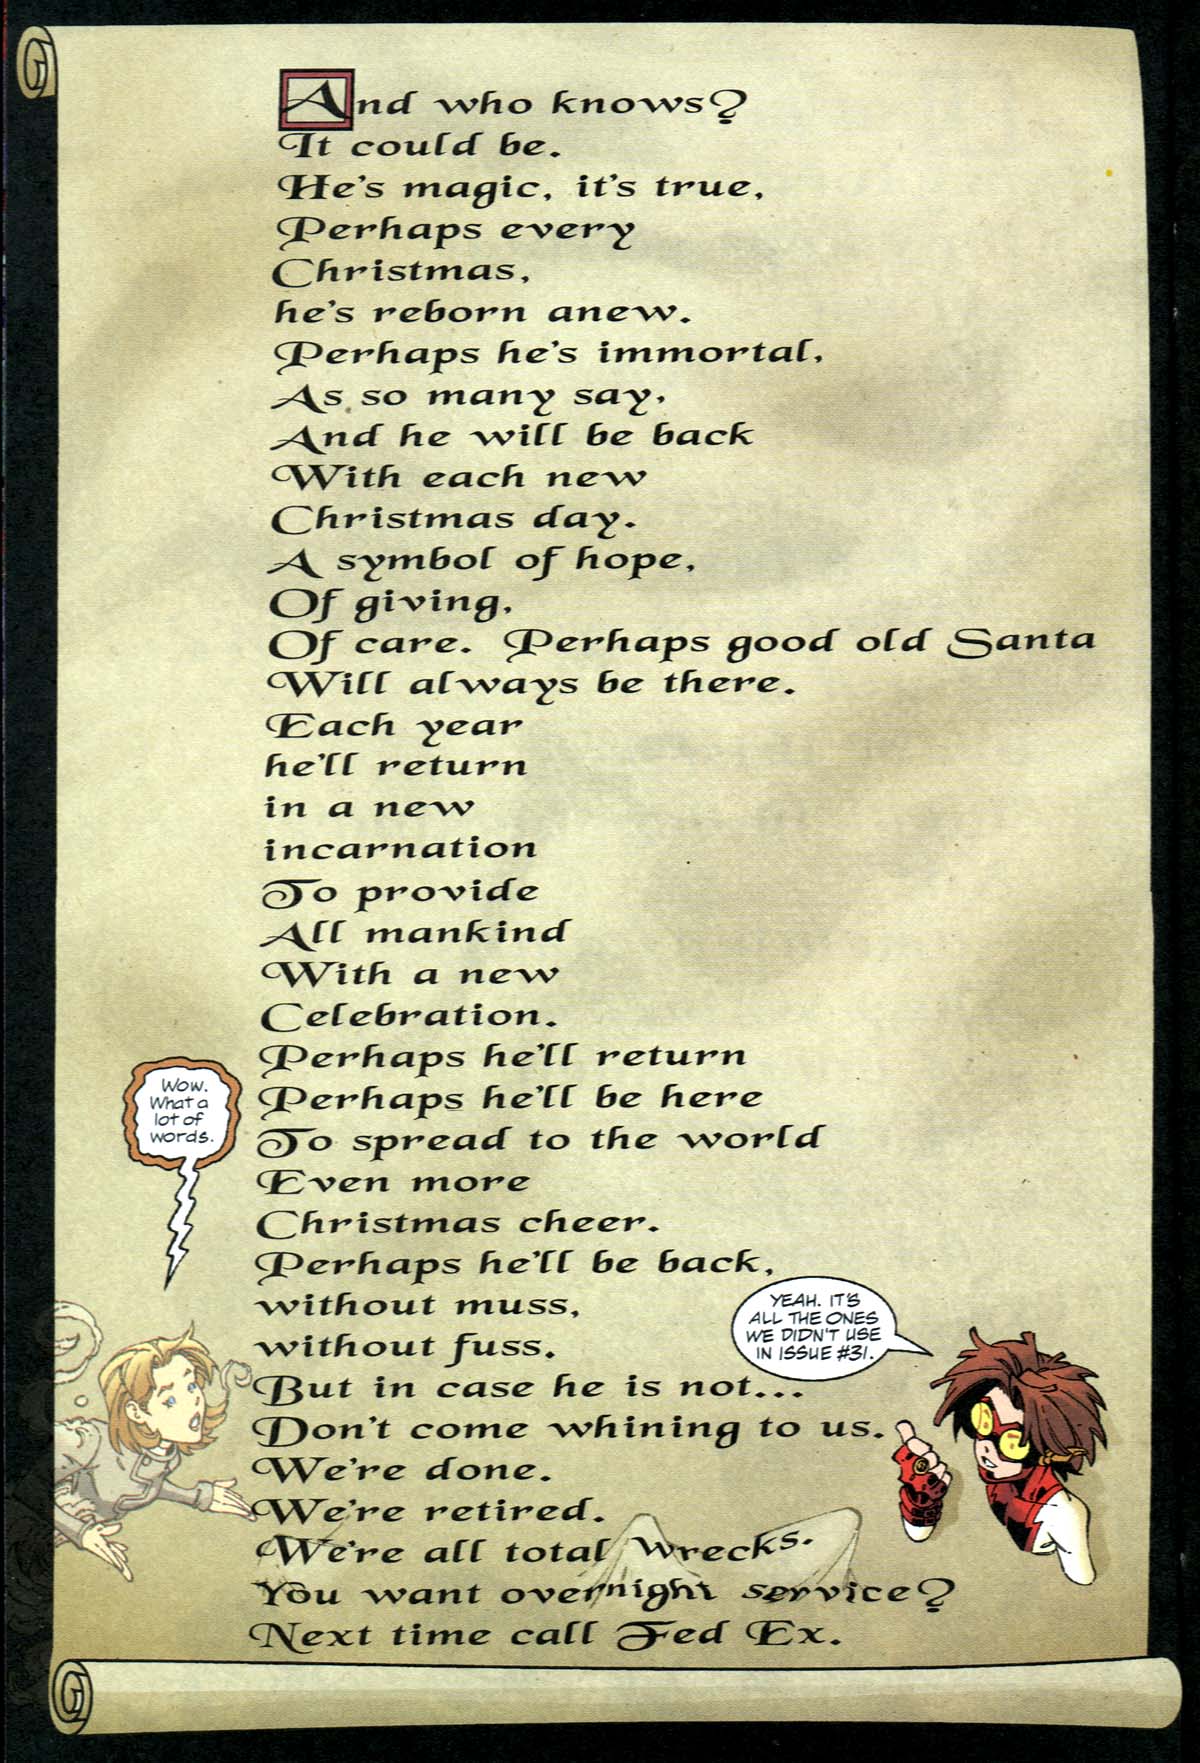 And who knows?
It could be.
He's magic, it's true,
Perhaps every
Christmas,
he's reborn anew.
Perhaps he's immortal,
As so many say,
And he will be back
With each new
Christmas day.
A symbol of hope,
Of giving,
Of care. Perhaps good old Santa
Will always be there.
Each year
he'll return
in a new
incarnation
To provide
All mankind
With a new
Celebration.
Perhaps he'll return
Perhaps he'll be here
To spread to the world
Even more
Christmas cheer.
Perhaps he'll be back,
without muss,
without fuss.
But in case he is not...
Don't come whining to us.
We're done.
We're retired.
We're all total wrecks.
You want overnight service?
Next time call Fed Ex.
Wow.
What a
lot of
words.
YEAH. IT'S
ALL THE ONES
WE DIDN'T USE
IN ISSUE #31.